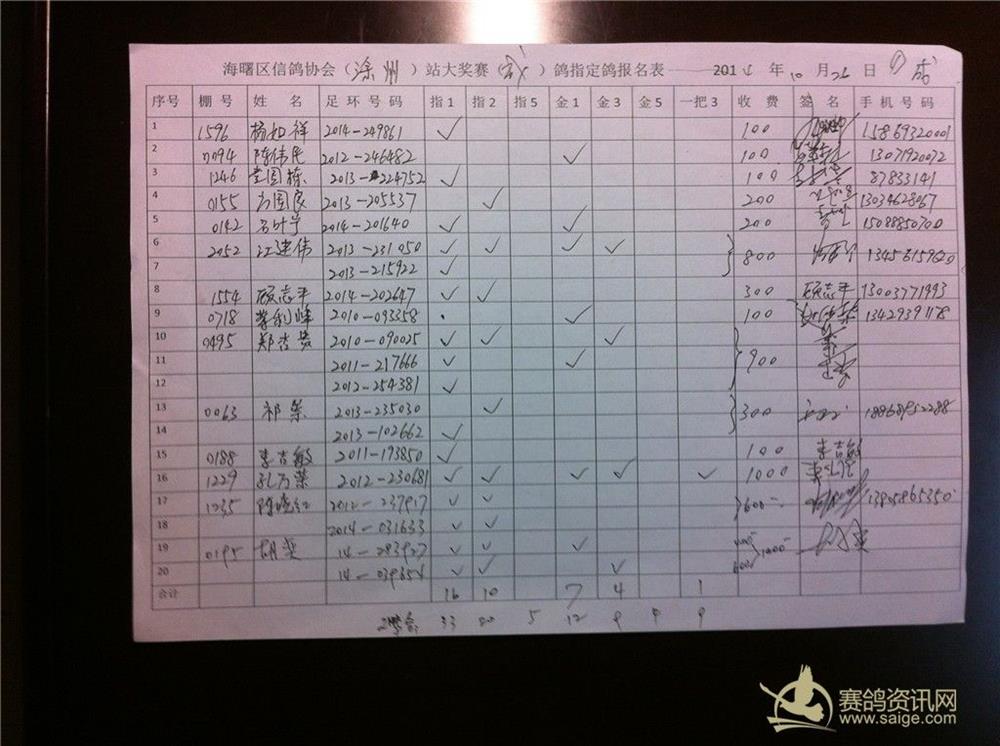 海曙区信鸽协会（滁州）站大奖赛（成）鸽指定鸽报名表 2014 年 10 月 26 日
序号 棚号 姓名 足环号码 指1 指2 指5 金1 金3 金5 一把3 收费 签名 手机号码
1 1596 杨如祥 2014-249861 ✓ 100 15869320001
2 0094 陈伟民 2012-246482 ✓ 100 13071920072
3 1246 国栋 2013-224752 ✓ 100 87833141
4 0155 方国良 2013-205537 ✓ 200 13034628067
5 0142 2014-201640 ✓ ✓ 200 15088850700
6 2052 江建伟 2013-231050 ✓ ✓ ✓ ✓ 800 13456159620
7 2013-215922 ✓
8 1554 顾志平 2014-202647 ✓ ✓ 300 顾志平 13003771993
9 0718 利峰 2010-093358 ✓ 100 13429391178
10 0495 郑杏贵 2010-090025 ✓ ✓ ✓ 900
11 2011-217666 ✓ ✓
12 2012-254381 ✓
13 0063 祁 2013-235030 ✓ 300 18868952288
14 2013-102662 ✓
15 0188 李吉敏 2011-193850 ✓ 100 李吉敏
16 1229 孔万荣 2012-230681 ✓ ✓ ✓ ✓ ✓ 1000
17 1235 陈 2012-237917 ✓ ✓ 600
18 2014-031633 ✓ ✓
19 0195 胡 14-283927 ✓ ✓ ✓ 1000
20 14-039654 ✓ ✓ ✓ 600
合计 16 10 7 4 1
33 20 5 12 9 9
赛鸽资讯网
www.saige.com